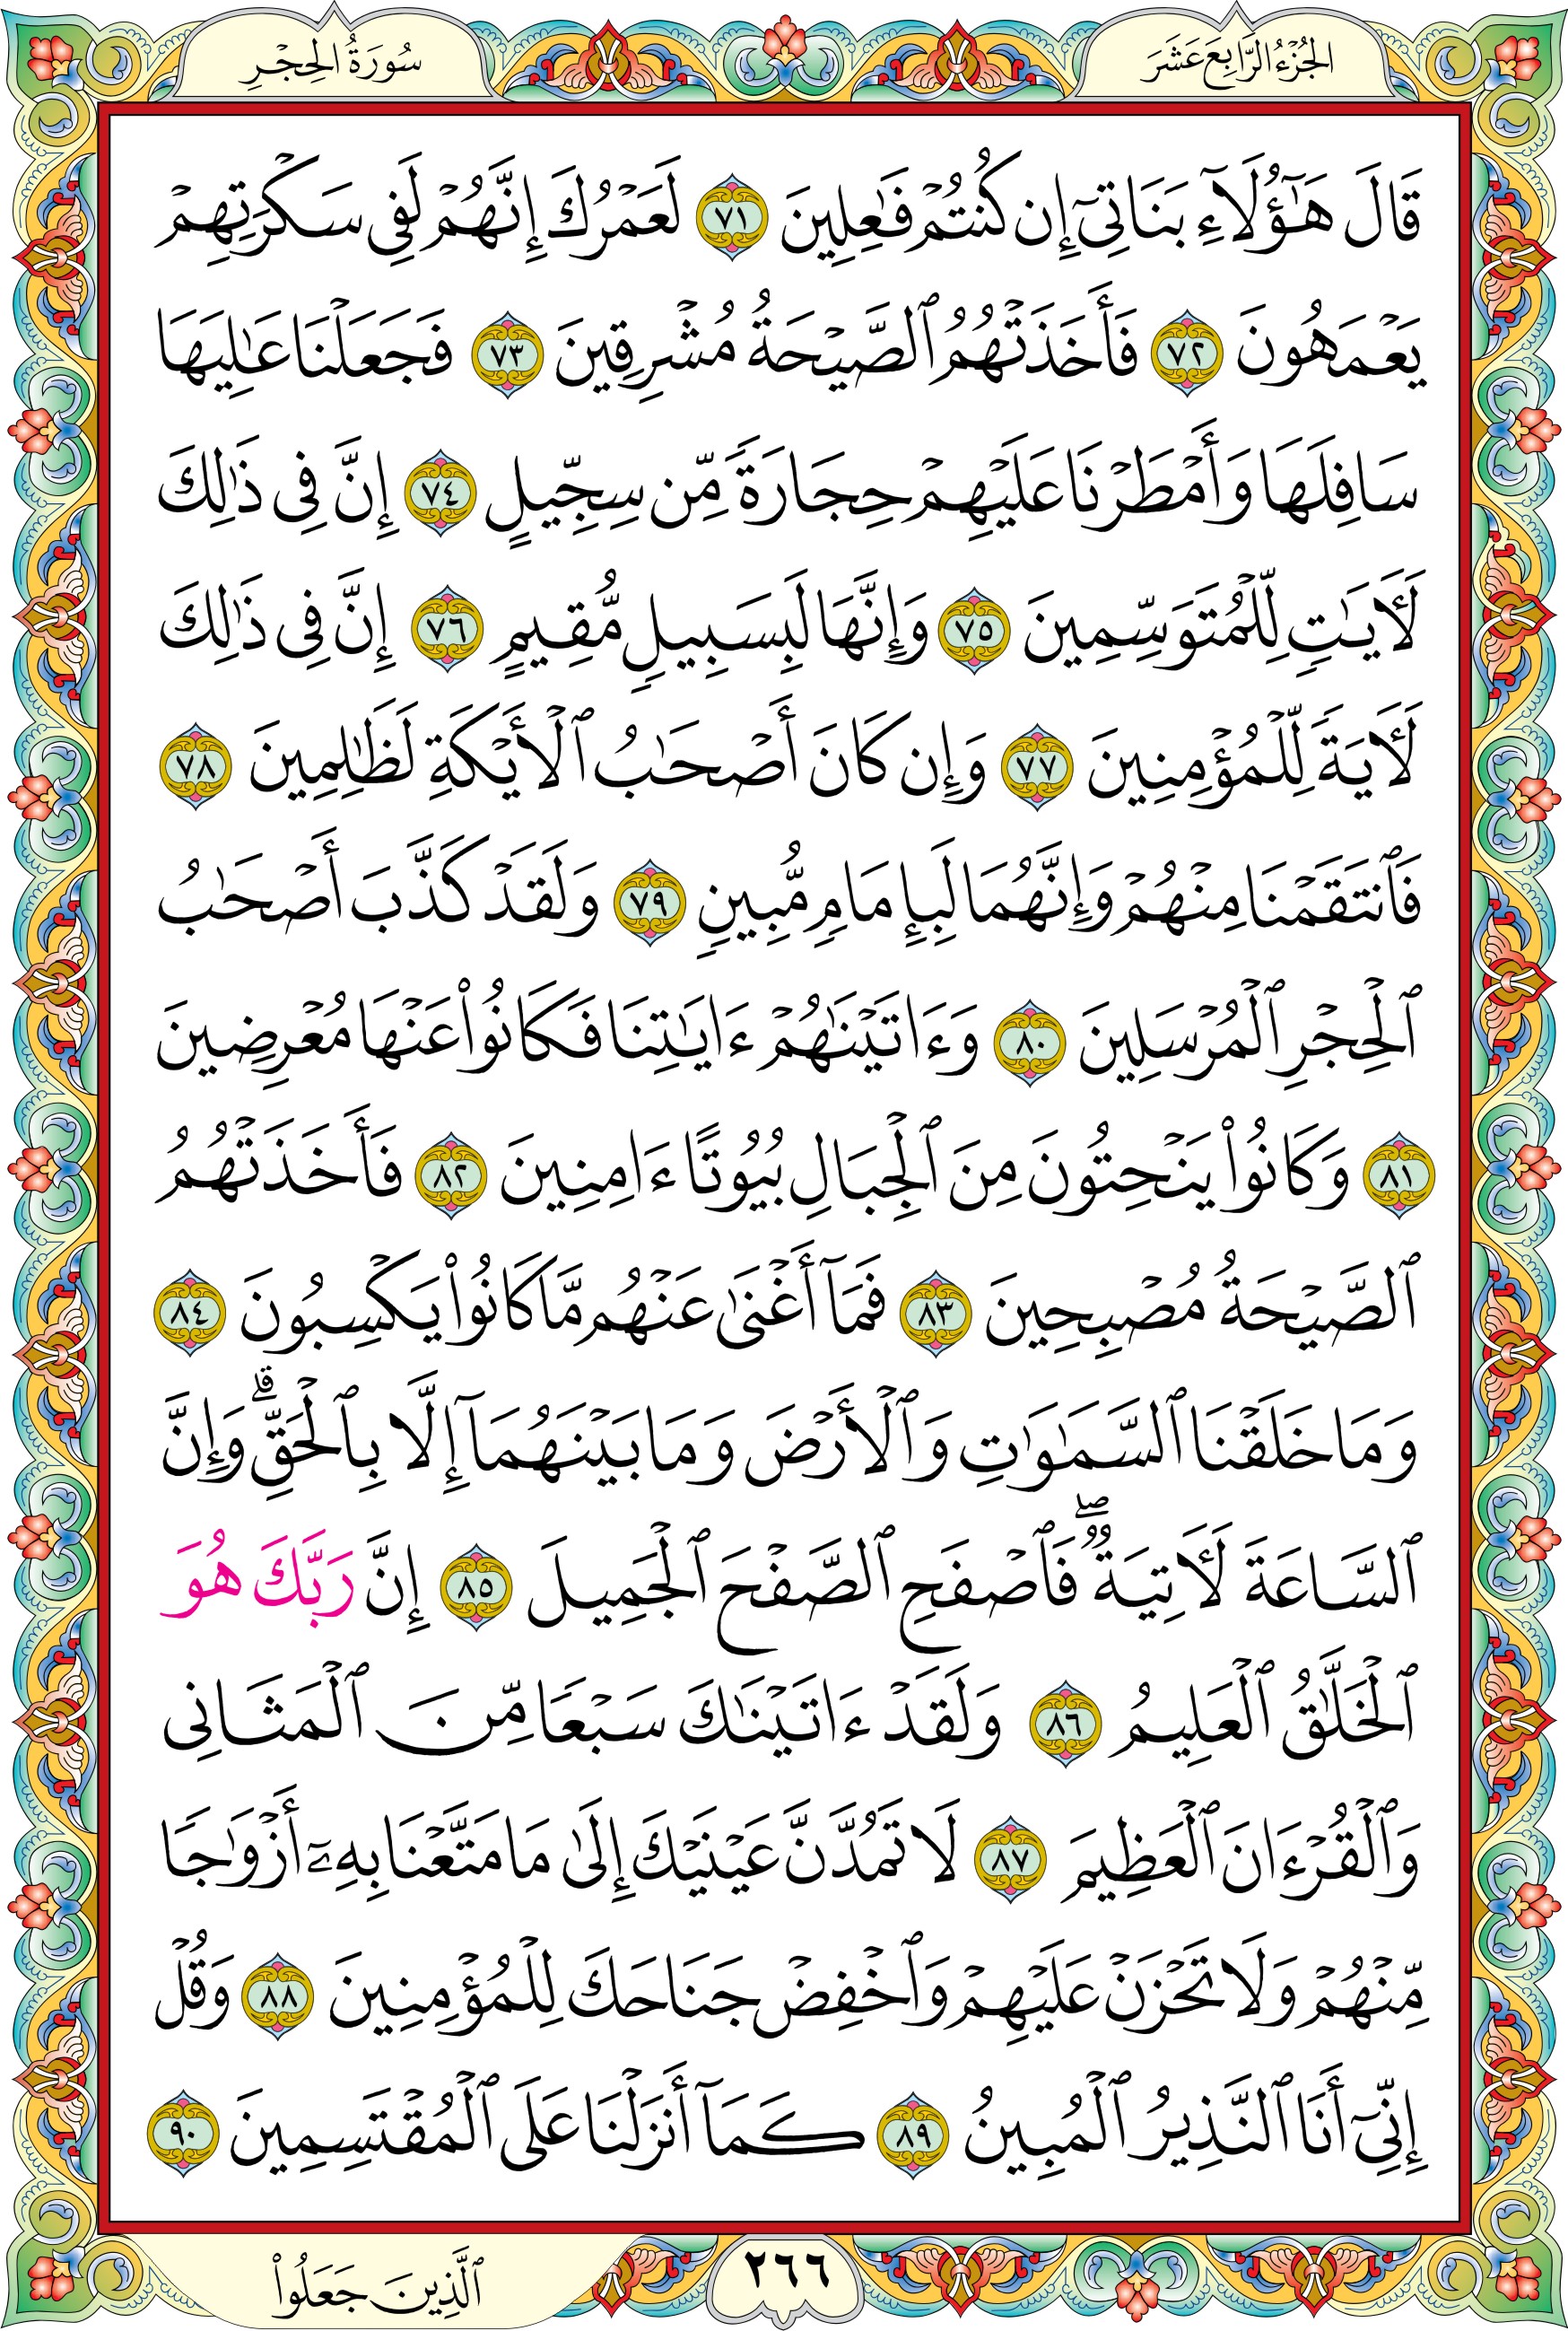 الجُزْءُ الرَّابِعَ عَشَرَ
سُورَةُ الحِجْرِ
قَالَ هَٰٓؤُلَآءِ بَنَاتِىٓ إِن كُنتُمْ فَٰعِلِينَ ٧١ لَعَمْرُكَ إِنَّهُمْ لَفِى سَكْرَتِهِمْ
يَعْمَهُونَ ٧٢ فَأَخَذَتْهُمُ ٱلصَّيْحَةُ مُشْرِقِينَ ٧٣ فَجَعَلْنَا عَٰلِيَهَا
سَافِلَهَا وَأَمْطَرْنَا عَلَيْهِمْ حِجَارَةً مِّن سِجِّيلٍ ٧٤ إِنَّ فِى ذَٰلِكَ
لَأٓيَٰتٍ لِّلْمُتَوَسِّمِينَ ٧٥ وَإِنَّهَا لَبِسَبِيلٍ مُّقِيمٍ ٧٦ إِنَّ فِى ذَٰلِكَ
لَأٓيَةً لِّلْمُؤْمِنِينَ ٧٧ وَإِن كَانَ أَصْحَٰبُ ٱلْأَيْكَةِ لَظَٰلِمِينَ ٧٨
فَٱنتَقَمْنَا مِنْهُمْ وَإِنَّهُمَا لَبِإِمَامٍ مُّبِينٍ ٧٩ وَلَقَدْ كَذَّبَ أَصْحَٰبُ
ٱلْحِجْرِ ٱلْمُرْسَلِينَ ٨٠ وَءَاتَيْنَٰهُمْ ءَايَٰتِنَا فَكَانُوا۟ عَنْهَا مُعْرِضِينَ
٨١ وَكَانُوا۟ يَنْحِتُونَ مِنَ ٱلْجِبَالِ بُيُوتًا ءَامِنِينَ ٨٢ فَأَخَذَتْهُمُ
ٱلصَّيْحَةُ مُصْبِحِينَ ٨٣ فَمَآ أَغْنَىٰ عَنْهُم مَّا كَانُوا۟ يَكْسِبُونَ ٨٤
وَمَا خَلَقْنَا ٱلسَّمَٰوَٰتِ وَٱلْأَرْضَ وَمَا بَيْنَهُمَآ إِلَّا بِٱلْحَقِّ ۗ وَإِنَّ
ٱلسَّاعَةَ لَأٓتِيَةٌ ۖ فَٱصْفَحِ ٱلصَّفْحَ ٱلْجَمِيلَ ٨٥ إِنَّ رَبَّكَ هُوَ
ٱلْخَلَّٰقُ ٱلْعَلِيمُ ٨٦ وَلَقَدْ ءَاتَيْنَٰكَ سَبْعًا مِّنَ ٱلْمَثَانِى
وَٱلْقُرْءَانَ ٱلْعَظِيمَ ٨٧ لَا تَمُدَّنَّ عَيْنَيْكَ إِلَىٰ مَا مَتَّعْنَا بِهِۦٓ أَزْوَٰجًا
مِّنْهُمْ وَلَا تَحْزَنْ عَلَيْهِمْ وَٱخْفِضْ جَنَاحَكَ لِلْمُؤْمِنِينَ ٨٨ وَقُلْ
إِنِّىٓ أَنَا ٱلنَّذِيرُ ٱلْمُبِينُ ٨٩ كَمَآ أَنزَلْنَا عَلَى ٱلْمُقْتَسِمِينَ ٩٠
٢٦٦
ٱلَّذِينَ جَعَلُوا۟